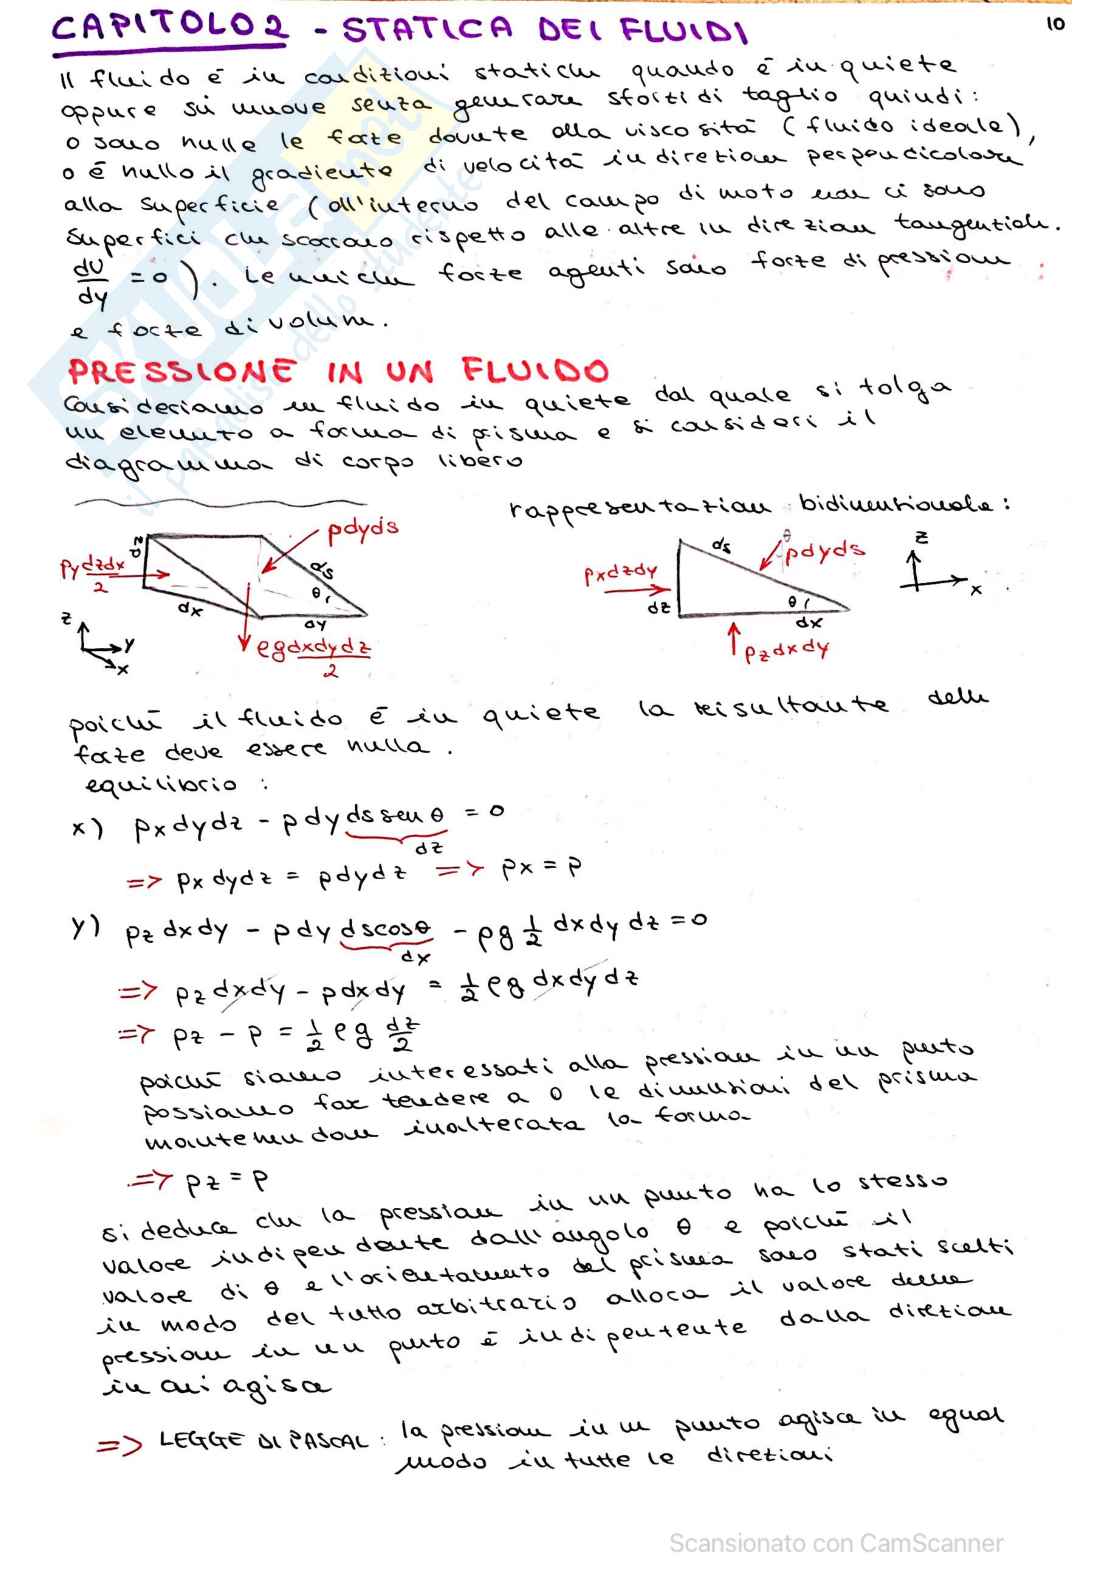 CAPITOLO 2 - STATICA DEI FLUIDI
10
Il fluido è in condizioni statiche quando è in quiete
oppure si muove senza generare sforzi di taglio quindi:
o sono nulle le forze dovute alla viscosità (fluido ideale),
o è nullo il gradiente di velocità in direzione perpendicolare
alla superficie (all'interno del campo di moto non ci sono
superfici che scorrono rispetto alle altre in direzione tangenziale.
dU/dy = 0). Le uniche forze agenti sono forze di pressione
e forze di volume.
PRESSIONE IN UN FLUIDO
Consideriamo un fluido in quiete dal quale si tolga
un elemento a forma di prisma e si consideri il
diagramma di corpo libero
rappresentazione bidimensionale:
pdyds
dz
ds
py dzdx/2
θ
dx
dy
z
y
x
ρg dxdydz/2
ds
θ
pdyds
pxdzdy
dz
θ
dx
pzdxdy
z
x
poiché il fluido è in quiete la risultante delle
forze deve essere nulla.
equilibrio :
x) pxdydz - pdydssenθ = 0
dz
=> pxdydz = pdydz => px = p
y) pzdxdy - pdydscosθ - ρg 1/2 dxdydz = 0
dx
=> pzdxdy - pdxdy = 1/2 ρg dxdydz
=> pz - p = 1/2 ρg dz/2
poiché siamo interessati alla pressione in un punto
possiamo far tendere a 0 le dimensioni del prisma
mantenendone inalterata la forma
=> pz = p
si deduce che la pressione in un punto ha lo stesso
valore indipendente dall'angolo θ e poiché il
valore di θ e l'orientamento del prisma sono stati scelti
in modo del tutto arbitrario allora il valore della
pressione in un punto è indipentente dalla direzione
in cui agisce
=> LEGGE DI PASCAL: la pressione in un punto agisce in egual
modo in tutte le direzioni
SKUOLA.net
il paradiso dello studente
Scansionato con CamScanner